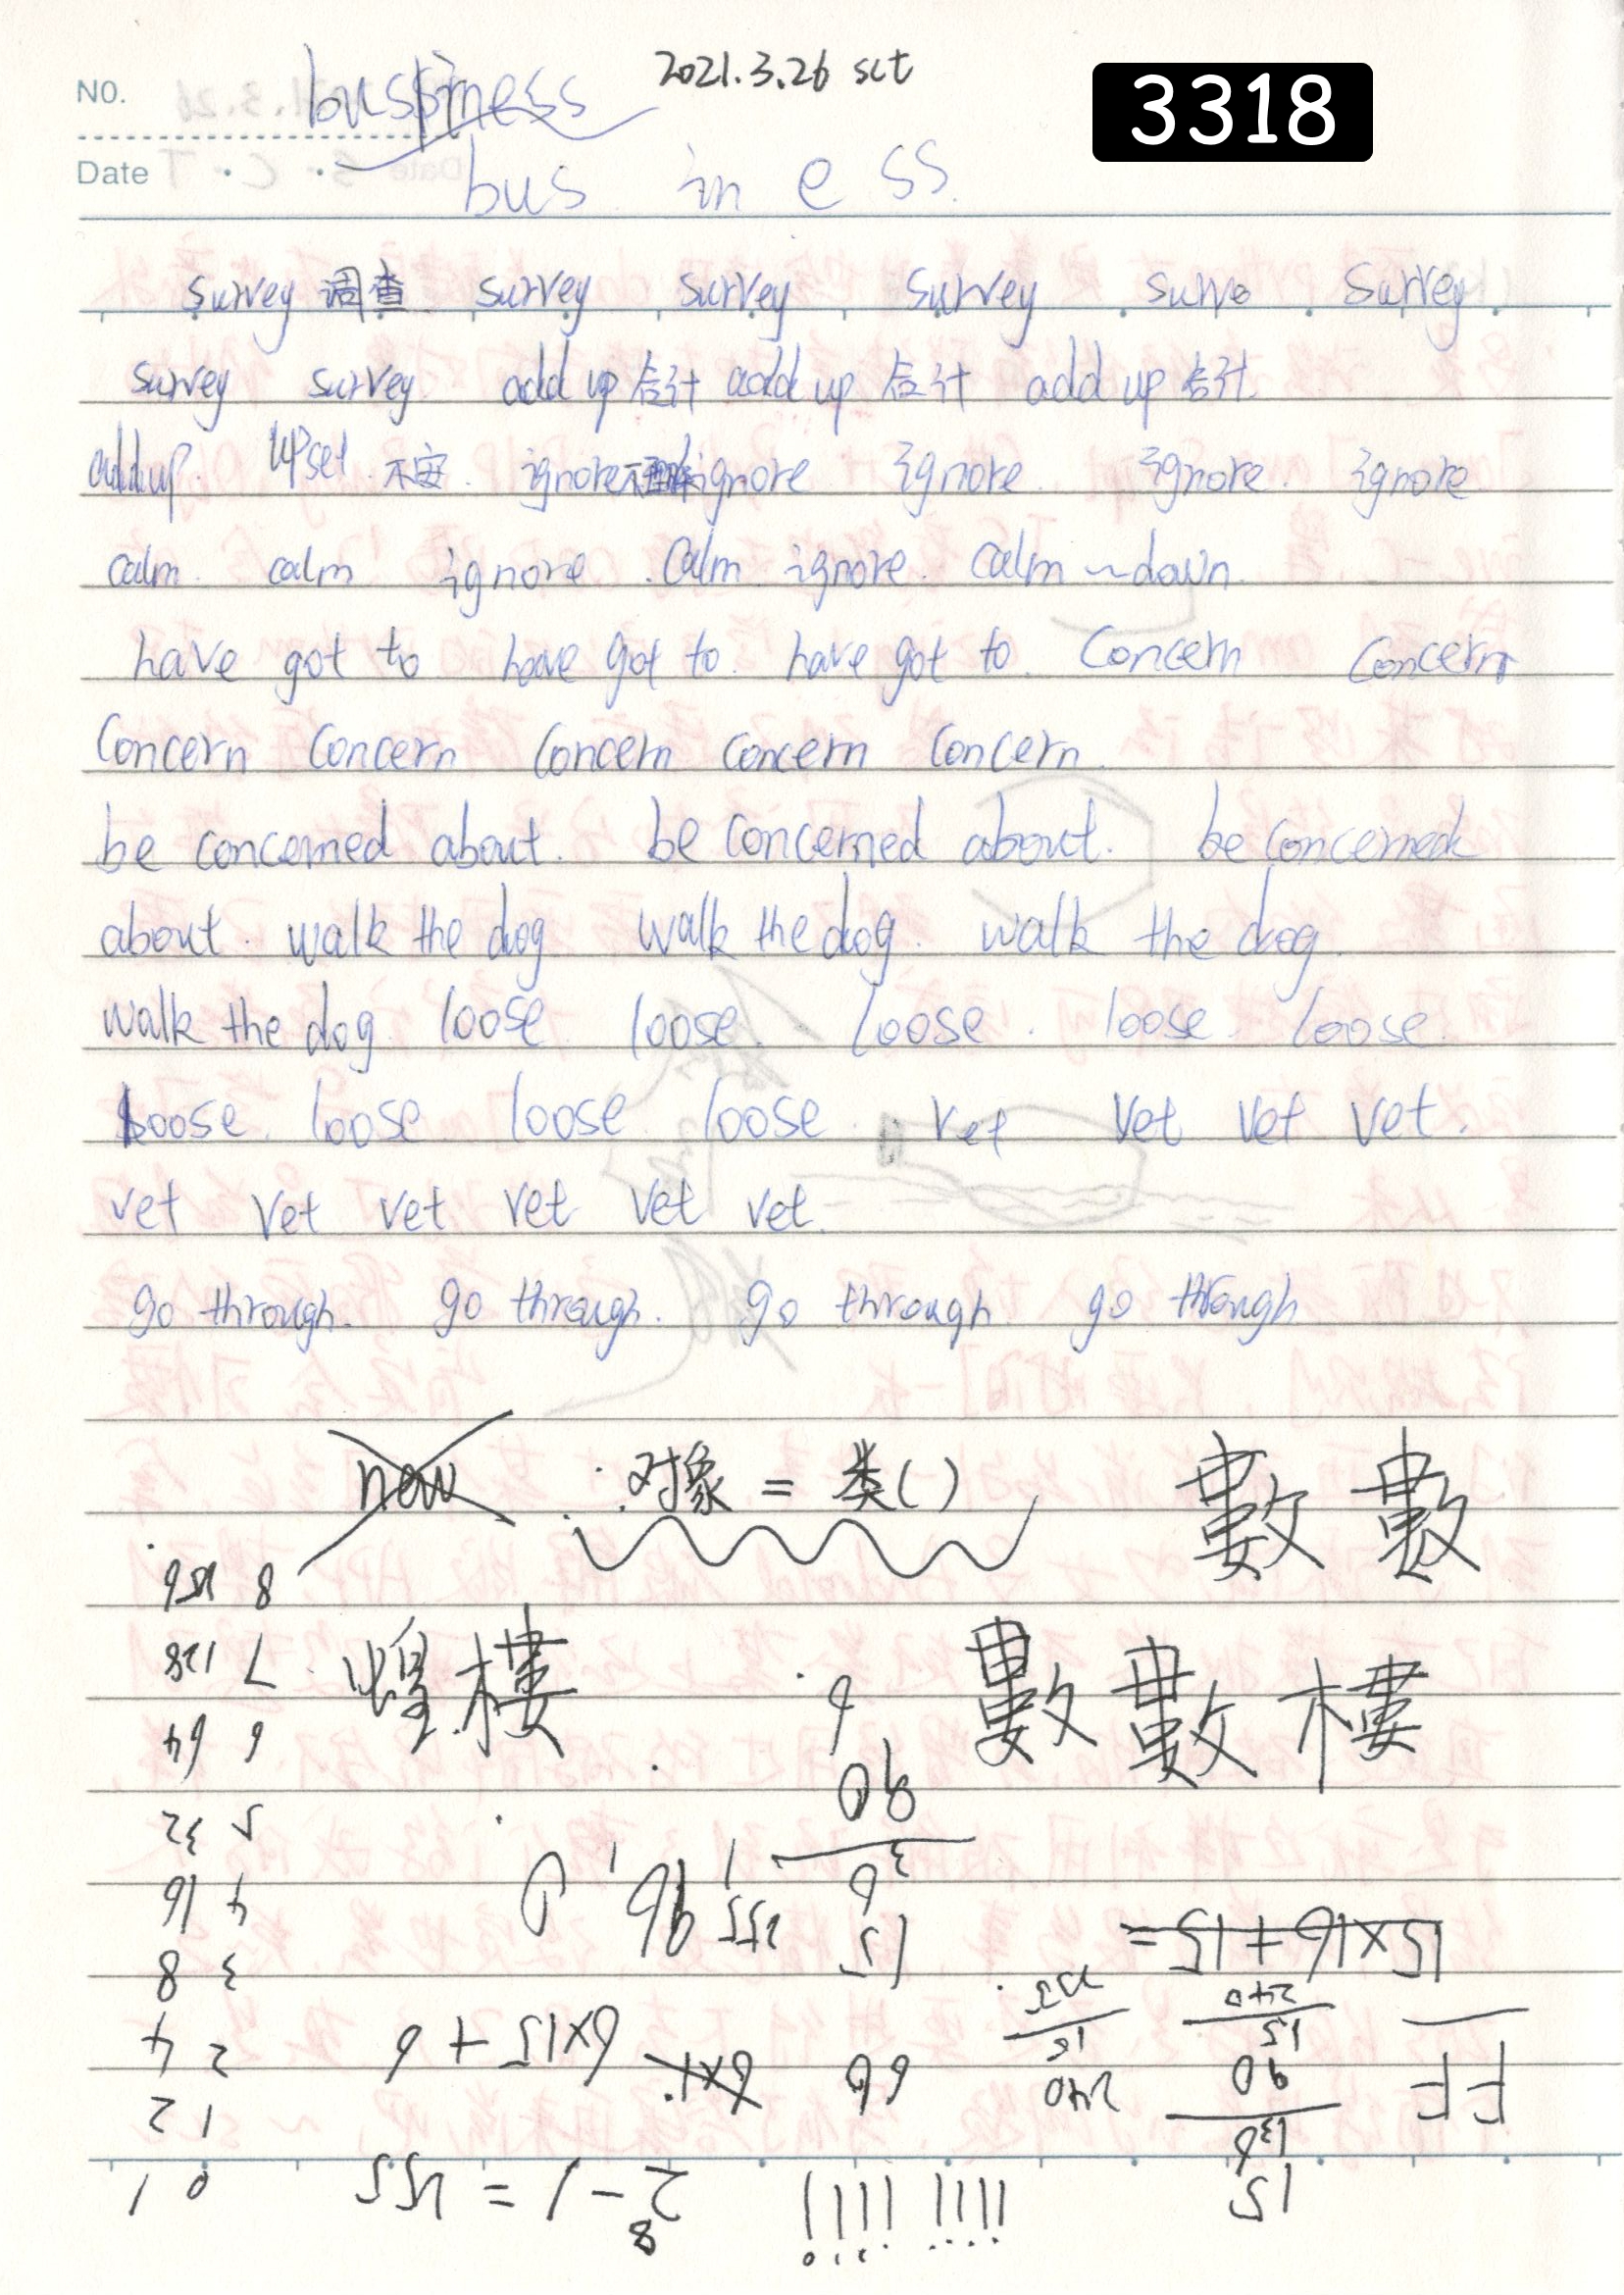 NO.
bussiness 2021.3.26 sct
3318
Date
bus in e ss.
survey 调查 survey survey survey surve survey
survey survey add up 合计 add up 合计 add up 合计
add up. upset 不安. ignore 不理睬 ignore ignore. ignore. ignore
calm. calm ignore. Calm. ignore. calm ~down.
have got to have got to. have got to. Concern Concern
Concern Concern Concern Concern Concern.
be concerned about. be concerned about. be concerned
about. walk the dog walk the dog. walk the dog.
walk the dog. loose loose. loose. loose. loose.
loose. loose loose. loose. vet vet vet vet.
vet vet vet vet vet vet.
go through. go through. go through. go through
new 对象 = 类() 數 數
煌 樓 數 數 樓
15
136
90
15
240
FF
15×16+15=
240
15
255
66
6×1.
6×15+6
15
6
90
6
255
96
1111 1111
2⁸-1=255
0 1
1 2
2 4
3 8
4 16
5 32
6 64
7 128
8 256